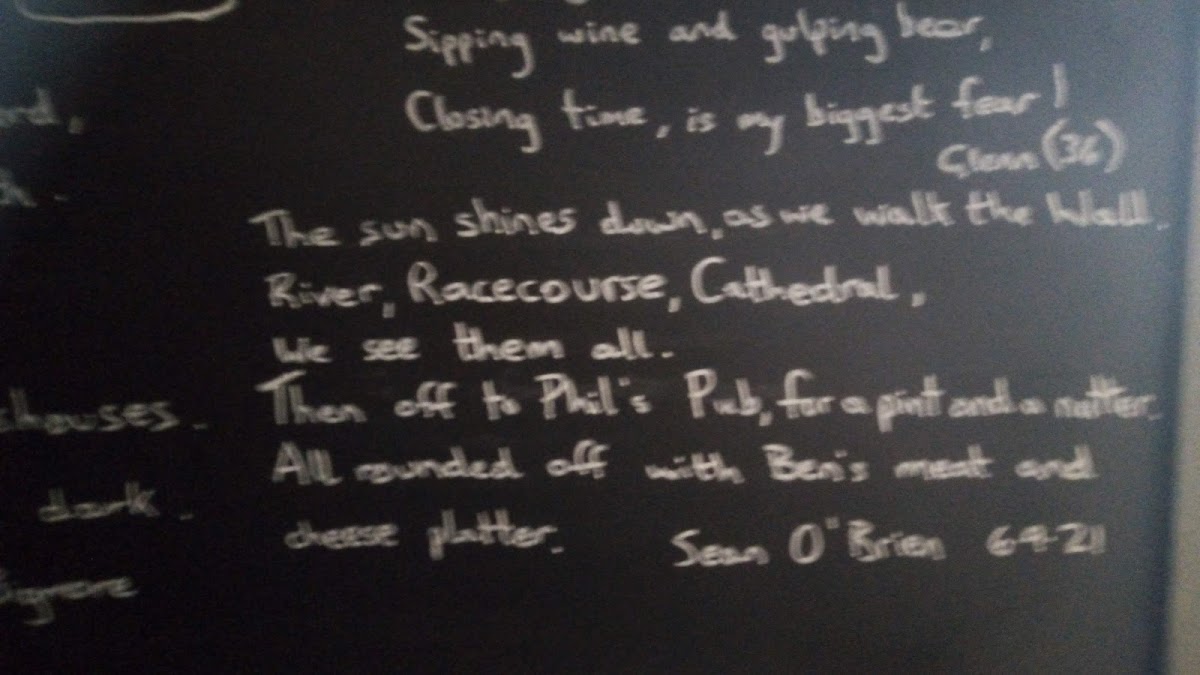 Sipping wine and gulping bear,
Closing time, is my biggest fear!
Glenn (36)
The sun shines down, as we walk the Wall.
River, Racecourse, Cathedral,
We see them all.
Then off to Phil's Pub, for a pint and a natter.
All rounded off with Ben's meat and
cheese platter.
Sean O'Brien 6-9-21
dark.